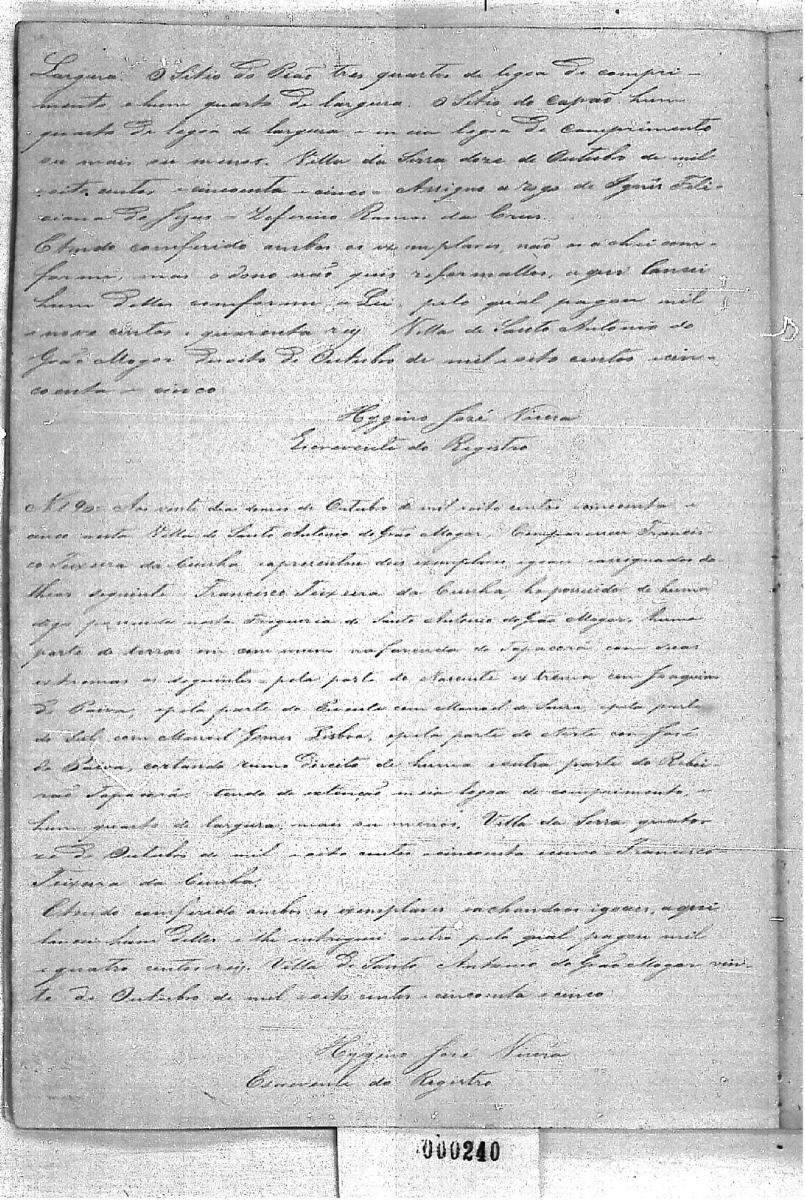 Largura. O Sitio do Pião tres quartos de legoa de compri-
mento, e hum quarto de largura. O Sitio do capão hum
quarto de legoa de largura e meia legoa de comprimento
ou mais ou menos. Villa da Serra doze de Outubro de mil
oito centos e cincoenta e cinco - Assigno a rogo de Ignês Feli-
ciana de Jezus - Zeferino Ramos da Cruz.
E tendo comferido ambos os exemplares, não os achei com-
forme, mas o dono não quis reformallos, aqui lancei
hum delles comforme a Lei, pelo qual pagou mil
e nove centos e quarenta reis Villa de Santo Antonio do
Grão Mogor dezoito de Outubro de mil e oito centos e cin-
coenta e cinco
Hyggino José Vieira
Escrevente do Registro
N 190. Aos vinte dias do mes de Outubro de mil oito centos e cincoenta e
cinco nesta Villa de Santo Antonio do Grão Mogor, Compareceu Francis-
co Teixeira da Cunha e aprezentou dois exemplares, iguaes e assignados do
theor seguinte - Francisco Teixeira da Cunha, he possuidor de huma
digo possuidor nesta Freguezia de Santo Antonio do Grão Mogor, huma
parte de terras em commum na fazenda do Tapacerá com suas
extremas as seguintes - pela parte do Nascente extrema com Joaquim
de Paiva, e pela parte do Poente com Manoel de Souza, e pela parte
do Sul com Manoel Gomes Lisboa, e pela parte do Norte com José
de Paiva, cortando rumo direito de huma e outra parte do Ribei-
rão Tapacerá: tendo de extenção meia legoa de comprimento, e
hum quarto de largura, mais ou menos, Villa da Serra quator
ze de Outubro de mil e oito centos e cincoenta e cinco - Francisco
Teixeira da Cunha.
E tendo comferido ambos os exemplares e achandoos iguaes, aqui
lancei hum delles e lhe entreguei outro pelo qual pagou mil
e quatro centos reis. Villa de Santo Antonio do Grão Mogor vin-
te de Outubro de mil e oito centos e cincoenta e cinco
Hyggino José Vieira
Escrevente do Registro
000240